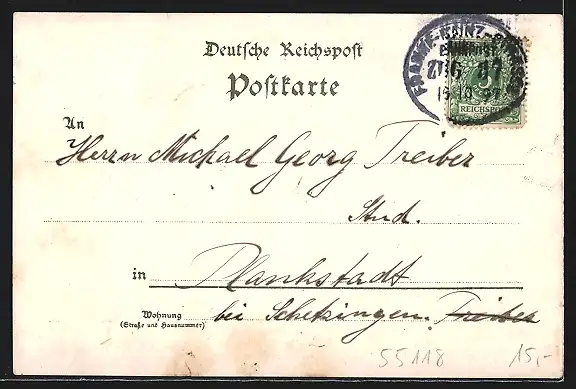 Deutsche Reichspost
Postkarte
BAHNPOST
ZUG 97
REICHSPOST
An
Herrn Michael Georg Treiber
Stud.
in Plankstadt
Wohnung bei Schetzingen. Treiber
(Straße und Hausnummer)
55118 15,-